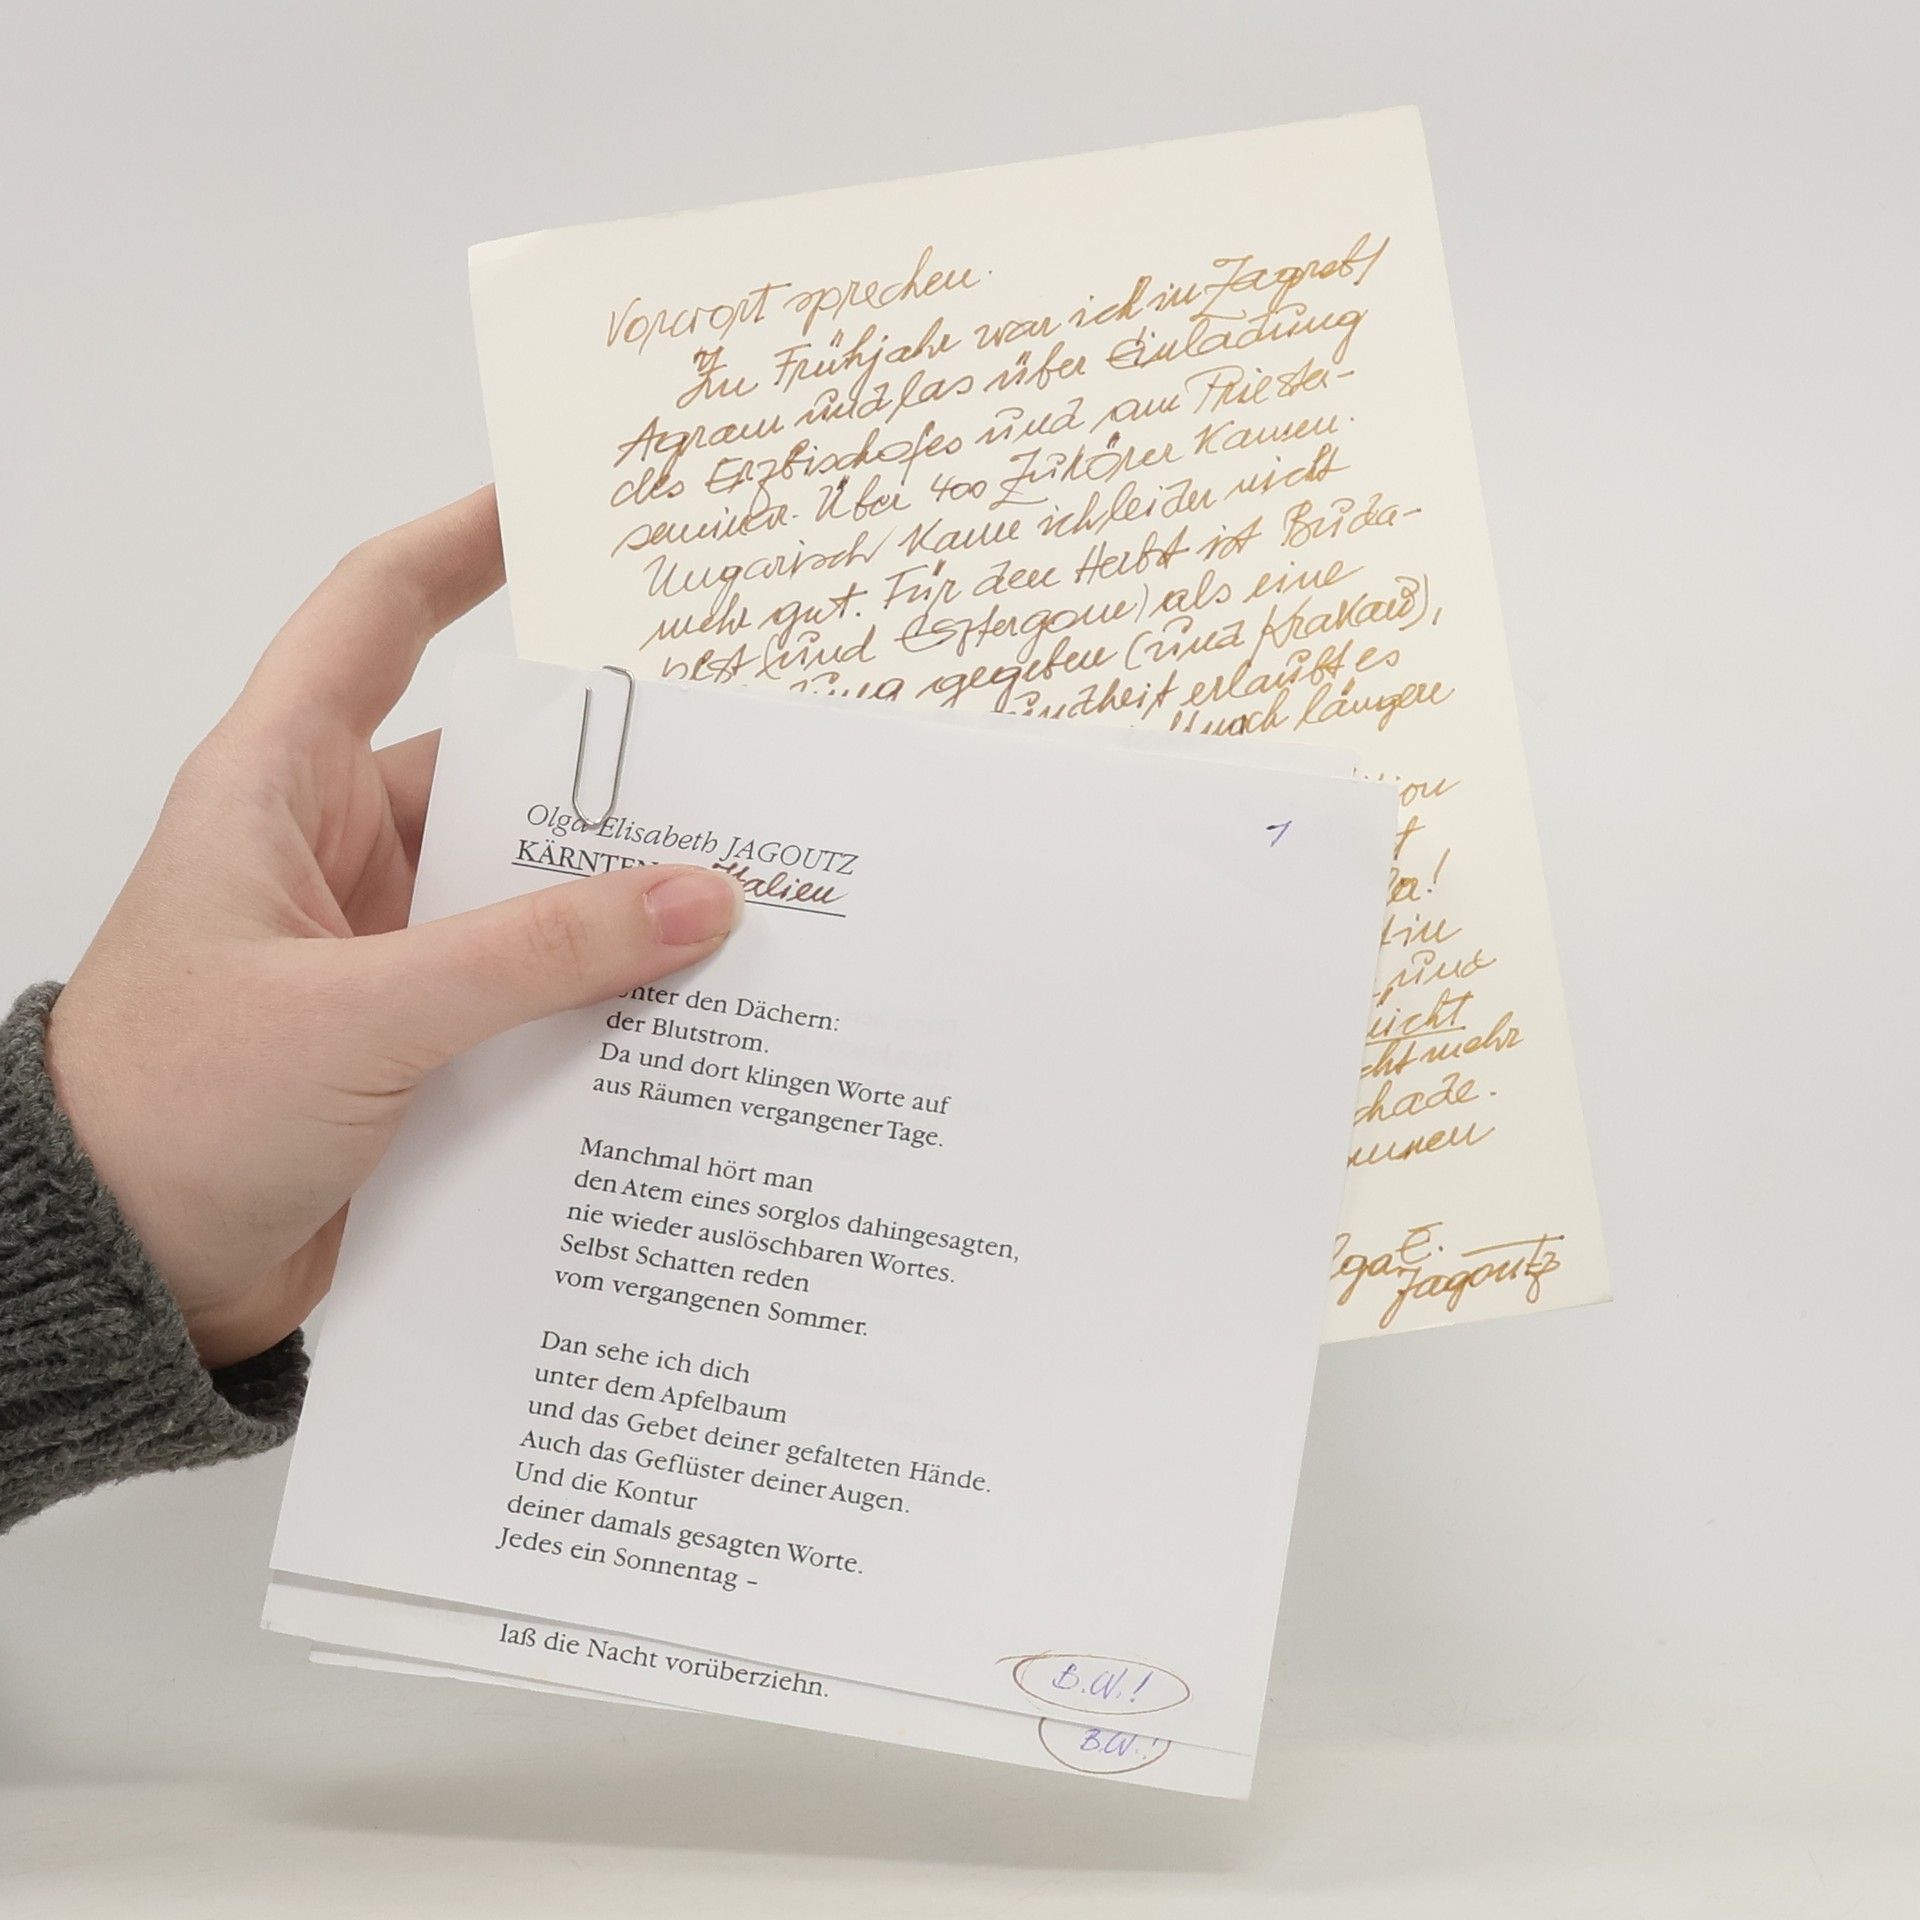 Vorwort sprechen.
Zu Frühjahr war ich in Zagreb/
Agram und las über Einladung
des Erzbischofes und am Priester-
seminar. Über 400 Zuhörer kamen.
Ungarisch kann ich leider nicht
mehr gut. Für den Herbst ist Buda-
pest (und Esztergom) als eine
gegeben (und Krakau),
erlaubt es
noch längere
!
in
und
nicht
mehr
E.
Jagoutz
Olga Elisabeth JAGOUTZ
KÄRNTEN Italien
1
unter den Dächern:
der Blutstrom.
Da und dort klingen Worte auf
aus Räumen vergangener Tage.
Manchmal hört man
den Atem eines sorglos dahingesagten,
nie wieder auslöschbaren Wortes.
Selbst Schatten reden
vom vergangenen Sommer.
Dan sehe ich dich
unter dem Apfelbaum
und das Gebet deiner gefalteten Hände.
Auch das Geflüster deiner Augen.
Und die Kontur
deiner damals gesagten Worte.
Jedes ein Sonnentag –
laß die Nacht vorüberziehn.
B.W.!
B.W.!